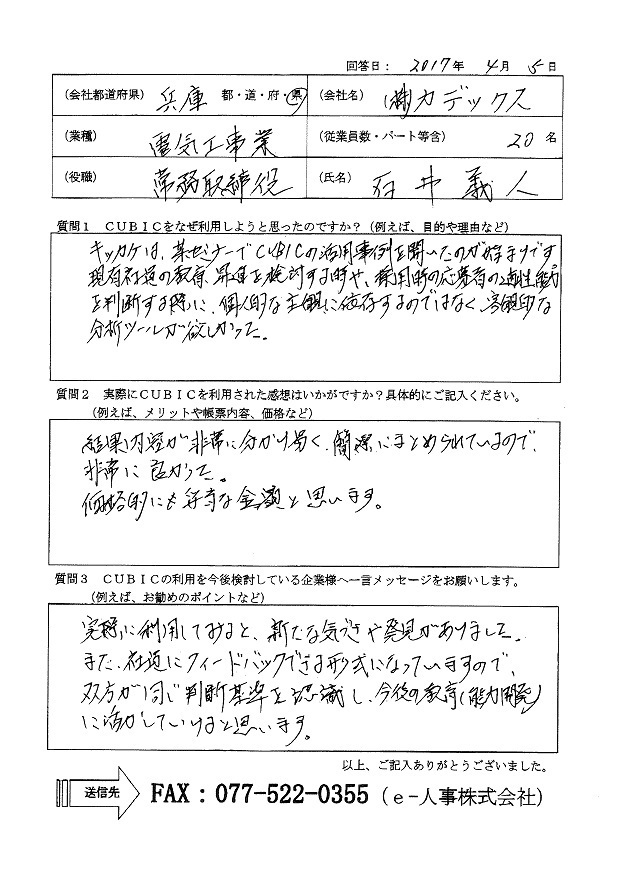 回答日： 2017年 4月 5日
（会社都道府県） 兵庫 都・道・府・県
（会社名） ㈱カデックス
（業種） 電気工事業
（従業員数・パート等含） 20 名
（役職） 常務取締役
（氏名） 石井 義人
質問１ ＣＵＢＩＣをなぜ利用しようと思ったのですか？（例えば、目的や理由など）
キッカケは、某セミナーでCUBICの活用事例を聞いたのが始まりです
現有社員の教育、昇進を検討する時や、採用時の応募者の適性能力
を判断する際に、個人的な主観に依存するのではなく、客観的な
分析ツールが欲しかった。
質問２ 実際にＣＵＢＩＣを利用された感想はいかがですか？具体的にご記入ください。
（例えば、メリットや帳票内容、価格など）
結果内容が非常に分かり易く、簡潔にまとめられているので、
非常に良かった。
価格的にも妥当な金額と思います。
質問３ ＣＵＢＩＣの利用を今後検討している企業様へ一言メッセージをお願いします。
（例えば、お勧めのポイントなど）
実際に利用してみると、新たな気づきや発見がありました。
また、社員にフィードバックできる形式になっていますので、
双方が同じ判断基準を認識し、今後の教育（能力開発）
に活かしていけると思います。
以上、ご記入ありがとうございました。
送信先 FAX：077-522-0355（e-人事株式会社）